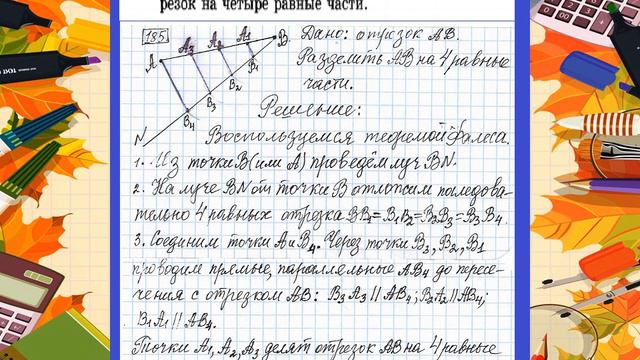 резок на четыре равные части.
185
A A3 A2 A1 B
B1
B2
B3
B4
N
Дано: отрезок AB.
Разделить AB на 4 равные
части.
Решение:
Воспользуемся теоремой Фалеса.
1. Из точки B (или A) проведём луч BN.
2. На луче BN от точки B отложим последова-
тельно 4 равных отрезка BB1=B1B2=B2B3=B3B4.
3. Соединим точки A и B4. Через точки B3, B2, B1
проводим прямые, параллельные AB4 до пересе-
чения с отрезком AB: B3A3 || AB4; B2A2 || AB4;
B1A1 || AB4.
Точки A1, A2, A3 делят отрезок AB на 4 равные